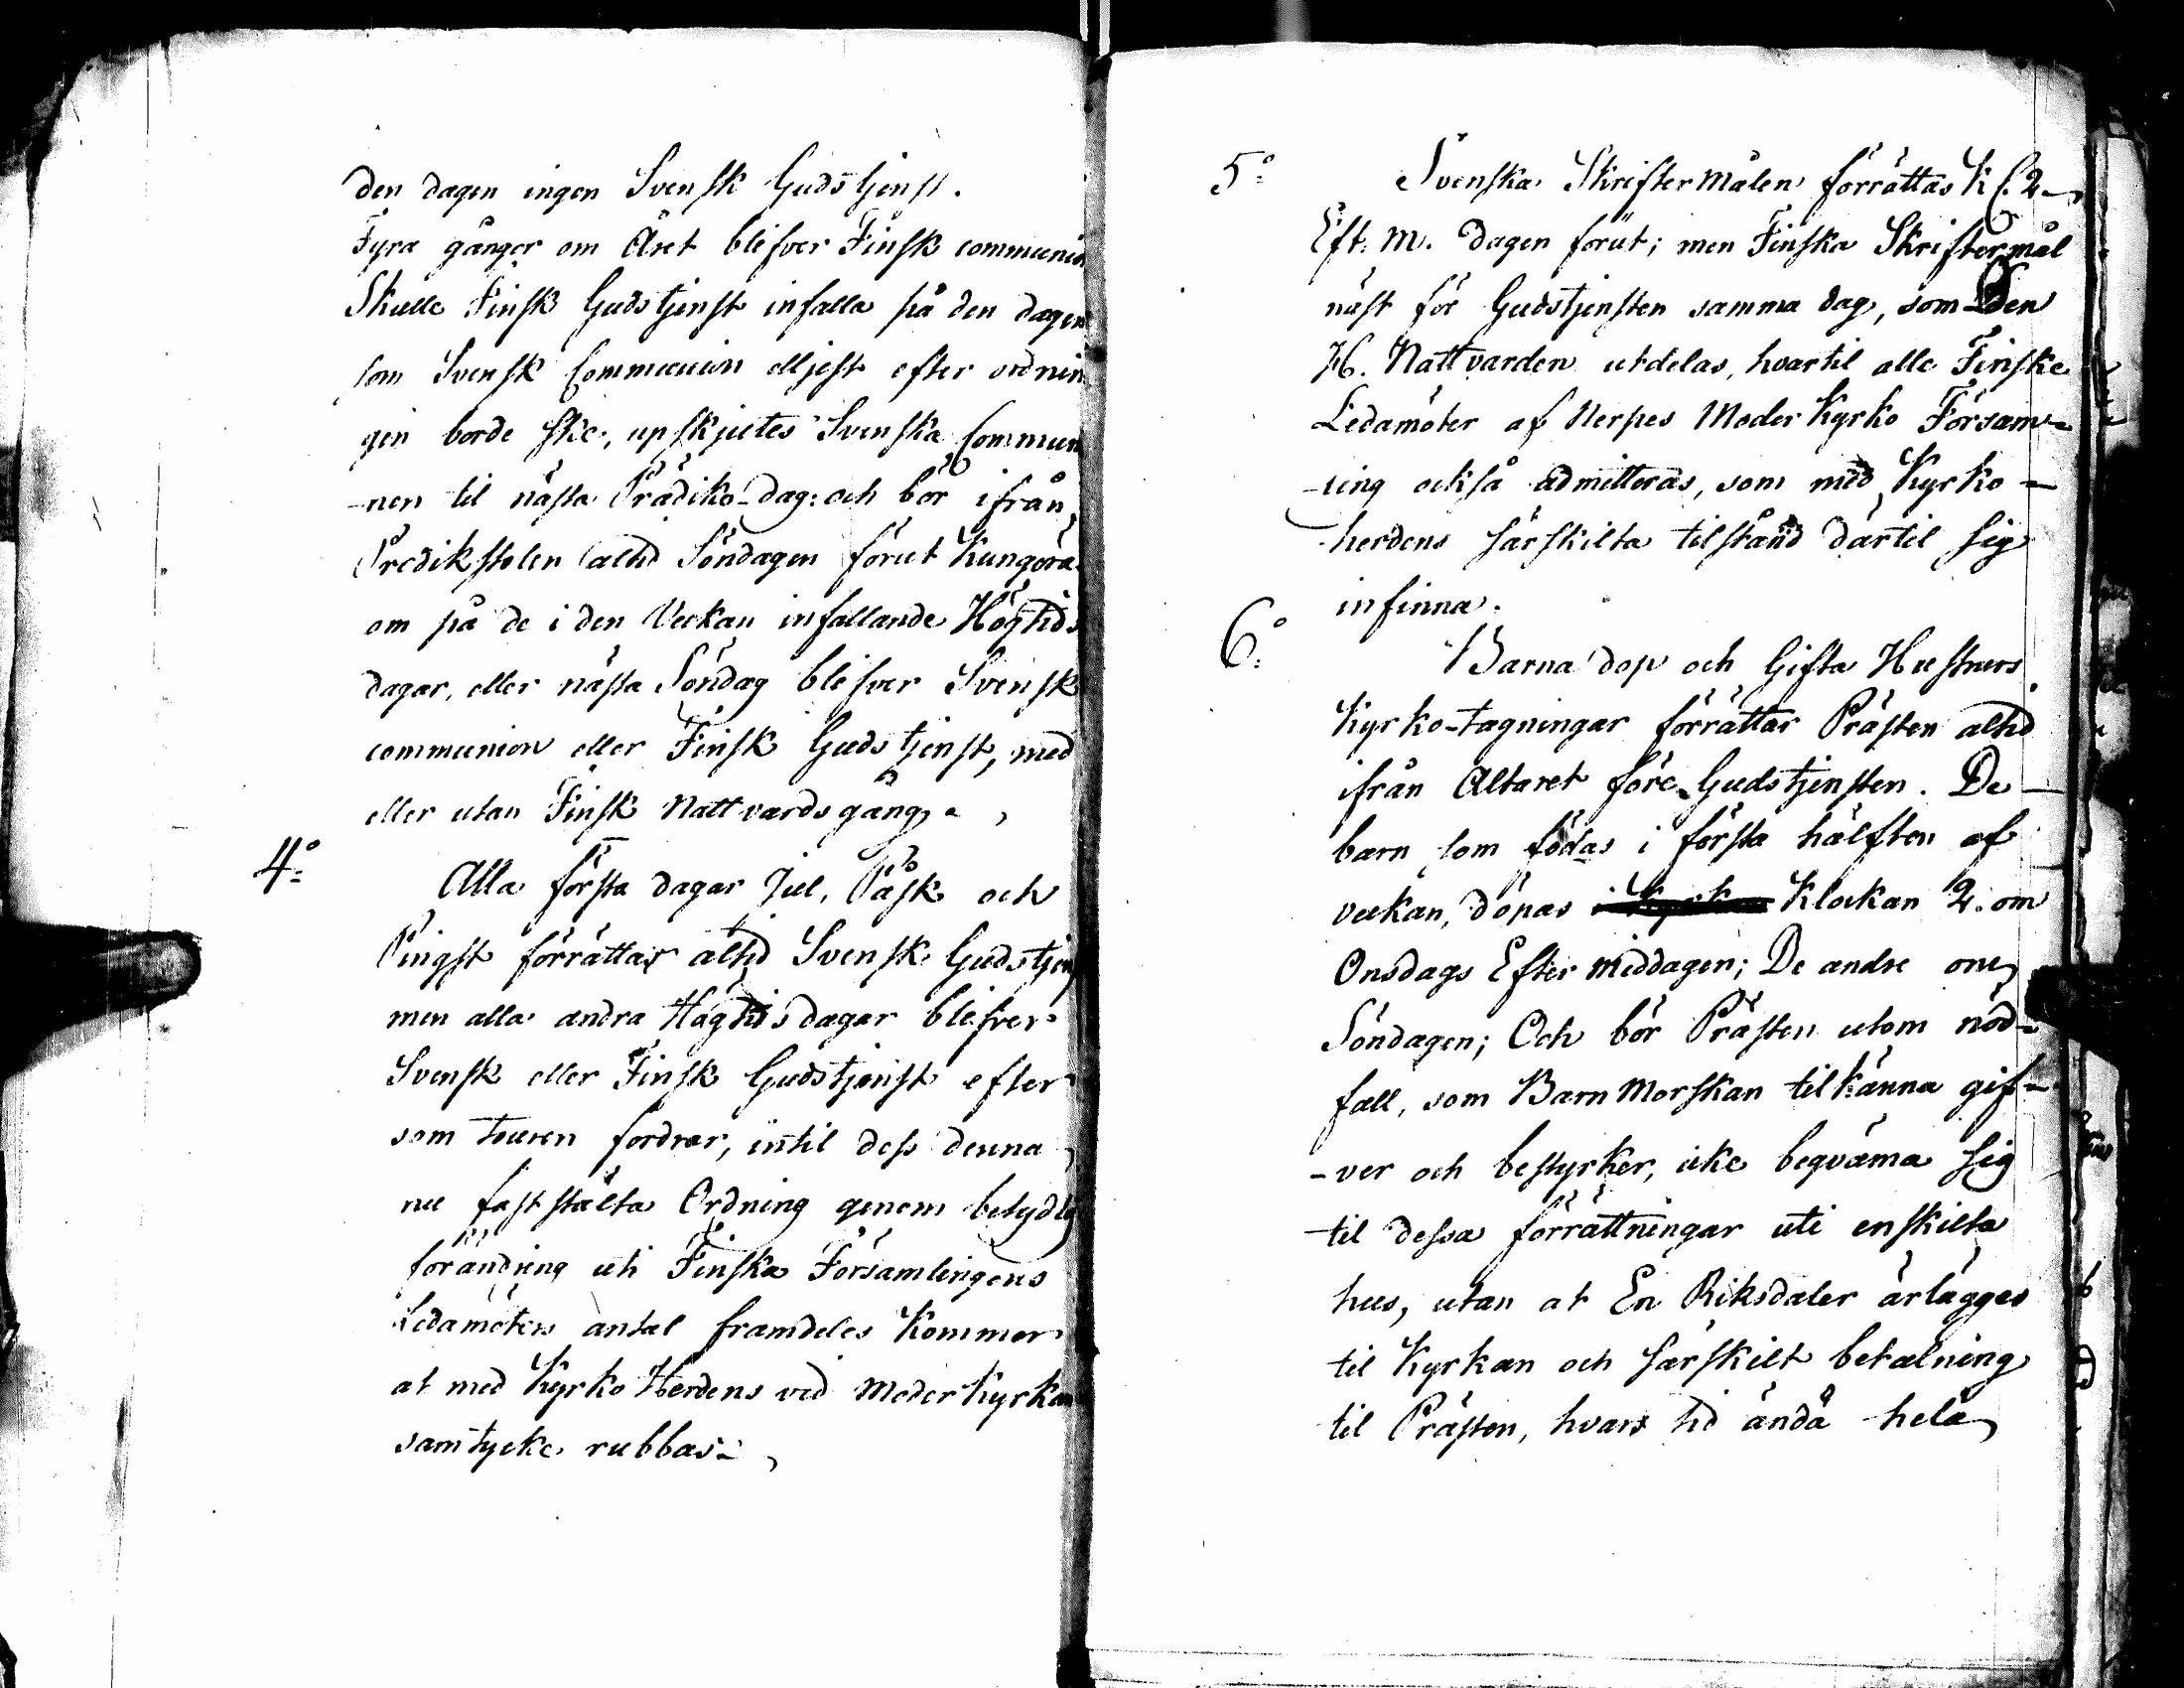 den dagen ingen Svensk Gudstjenst.
Fyra gånger om Året blifver Finsk communion
Skulle Finsk Gudstjenst infalla på den dagen
som Svensk Communion elljest efter ordnin
gen borde ske, upskjutes Svenska Commun
-nen til nästa Prädiko-dag: och bör ifrån
Predikstolen altid Söndagen förut Kungöras
om på de i den Veckan infallande Högtids
dagar, eller nästa Söndag blifver Svensk
communion eller Finsk Gudstjenst, med
eller utan Finsk Nattvardsgång.
4:o Alla första dagar Jul, Påsk och
Pingst förrättas altid Svensk Gudstjen
men alla andra Högtidsdagar blifver
Svensk eller Finsk Gudstjenst efter
som touren fordrar, intil dess denna
nu fastställta Ordning genom betydlig
förändring uti Finska Församlingens
Ledamöters antal framdeles Kommer
at med Kyrko Herdens vid Moder Kyrkan
samtycke rubbas.
5:o Svenska Skriftermålen förrättas Kl. 2
Eft: M. dagen förut; men Finska Skriftermål
näst för Gudstjensten samma dag, som den
H. Nattvarden utdelas, hvartil alle Finske
Ledamöter af Nerpes Moder Kyrko Försam-
-ling också admitteras, som med Kyrko-
-herdens särskilta tilstånd därtil sig
infinna.
6:o Barna dop och Gifta Hustrurs
Kyrko-tagningar förrättar Prästen altid
ifrån Altaret före Gudstjensten. De
barn som födas i första hälften af
veckan, döpas i Kyrkan Klockan 2. om
Onsdags Efter middagen; De andre om
Söndagen; Och bör Prästen utom nöd-
fall, som Barn Morskan tilkänna gif-
-ver och bestyrker, icke begväma sig
til dessa förrättningar uti enskilta
hus, utan at En Riksdaler ärlägges
til Kyrkan och särskilt betalning
til Prästen, hvars tid ändå hela